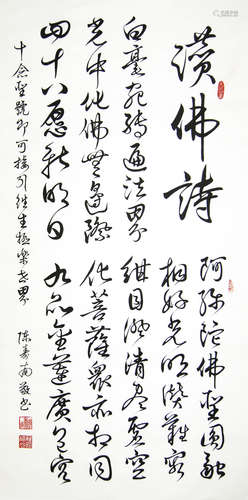 讚佛詩
阿彌陀佛聖圓融
相好光明讚難窮
白毫宛轉遍法界 紺目澄清盡虛空
光中化佛無邊際 化菩薩眾亦相同
四十八願明日 九品金蓮廣包容
十念聖號即可接引往生極樂世界 陳壽南敬書